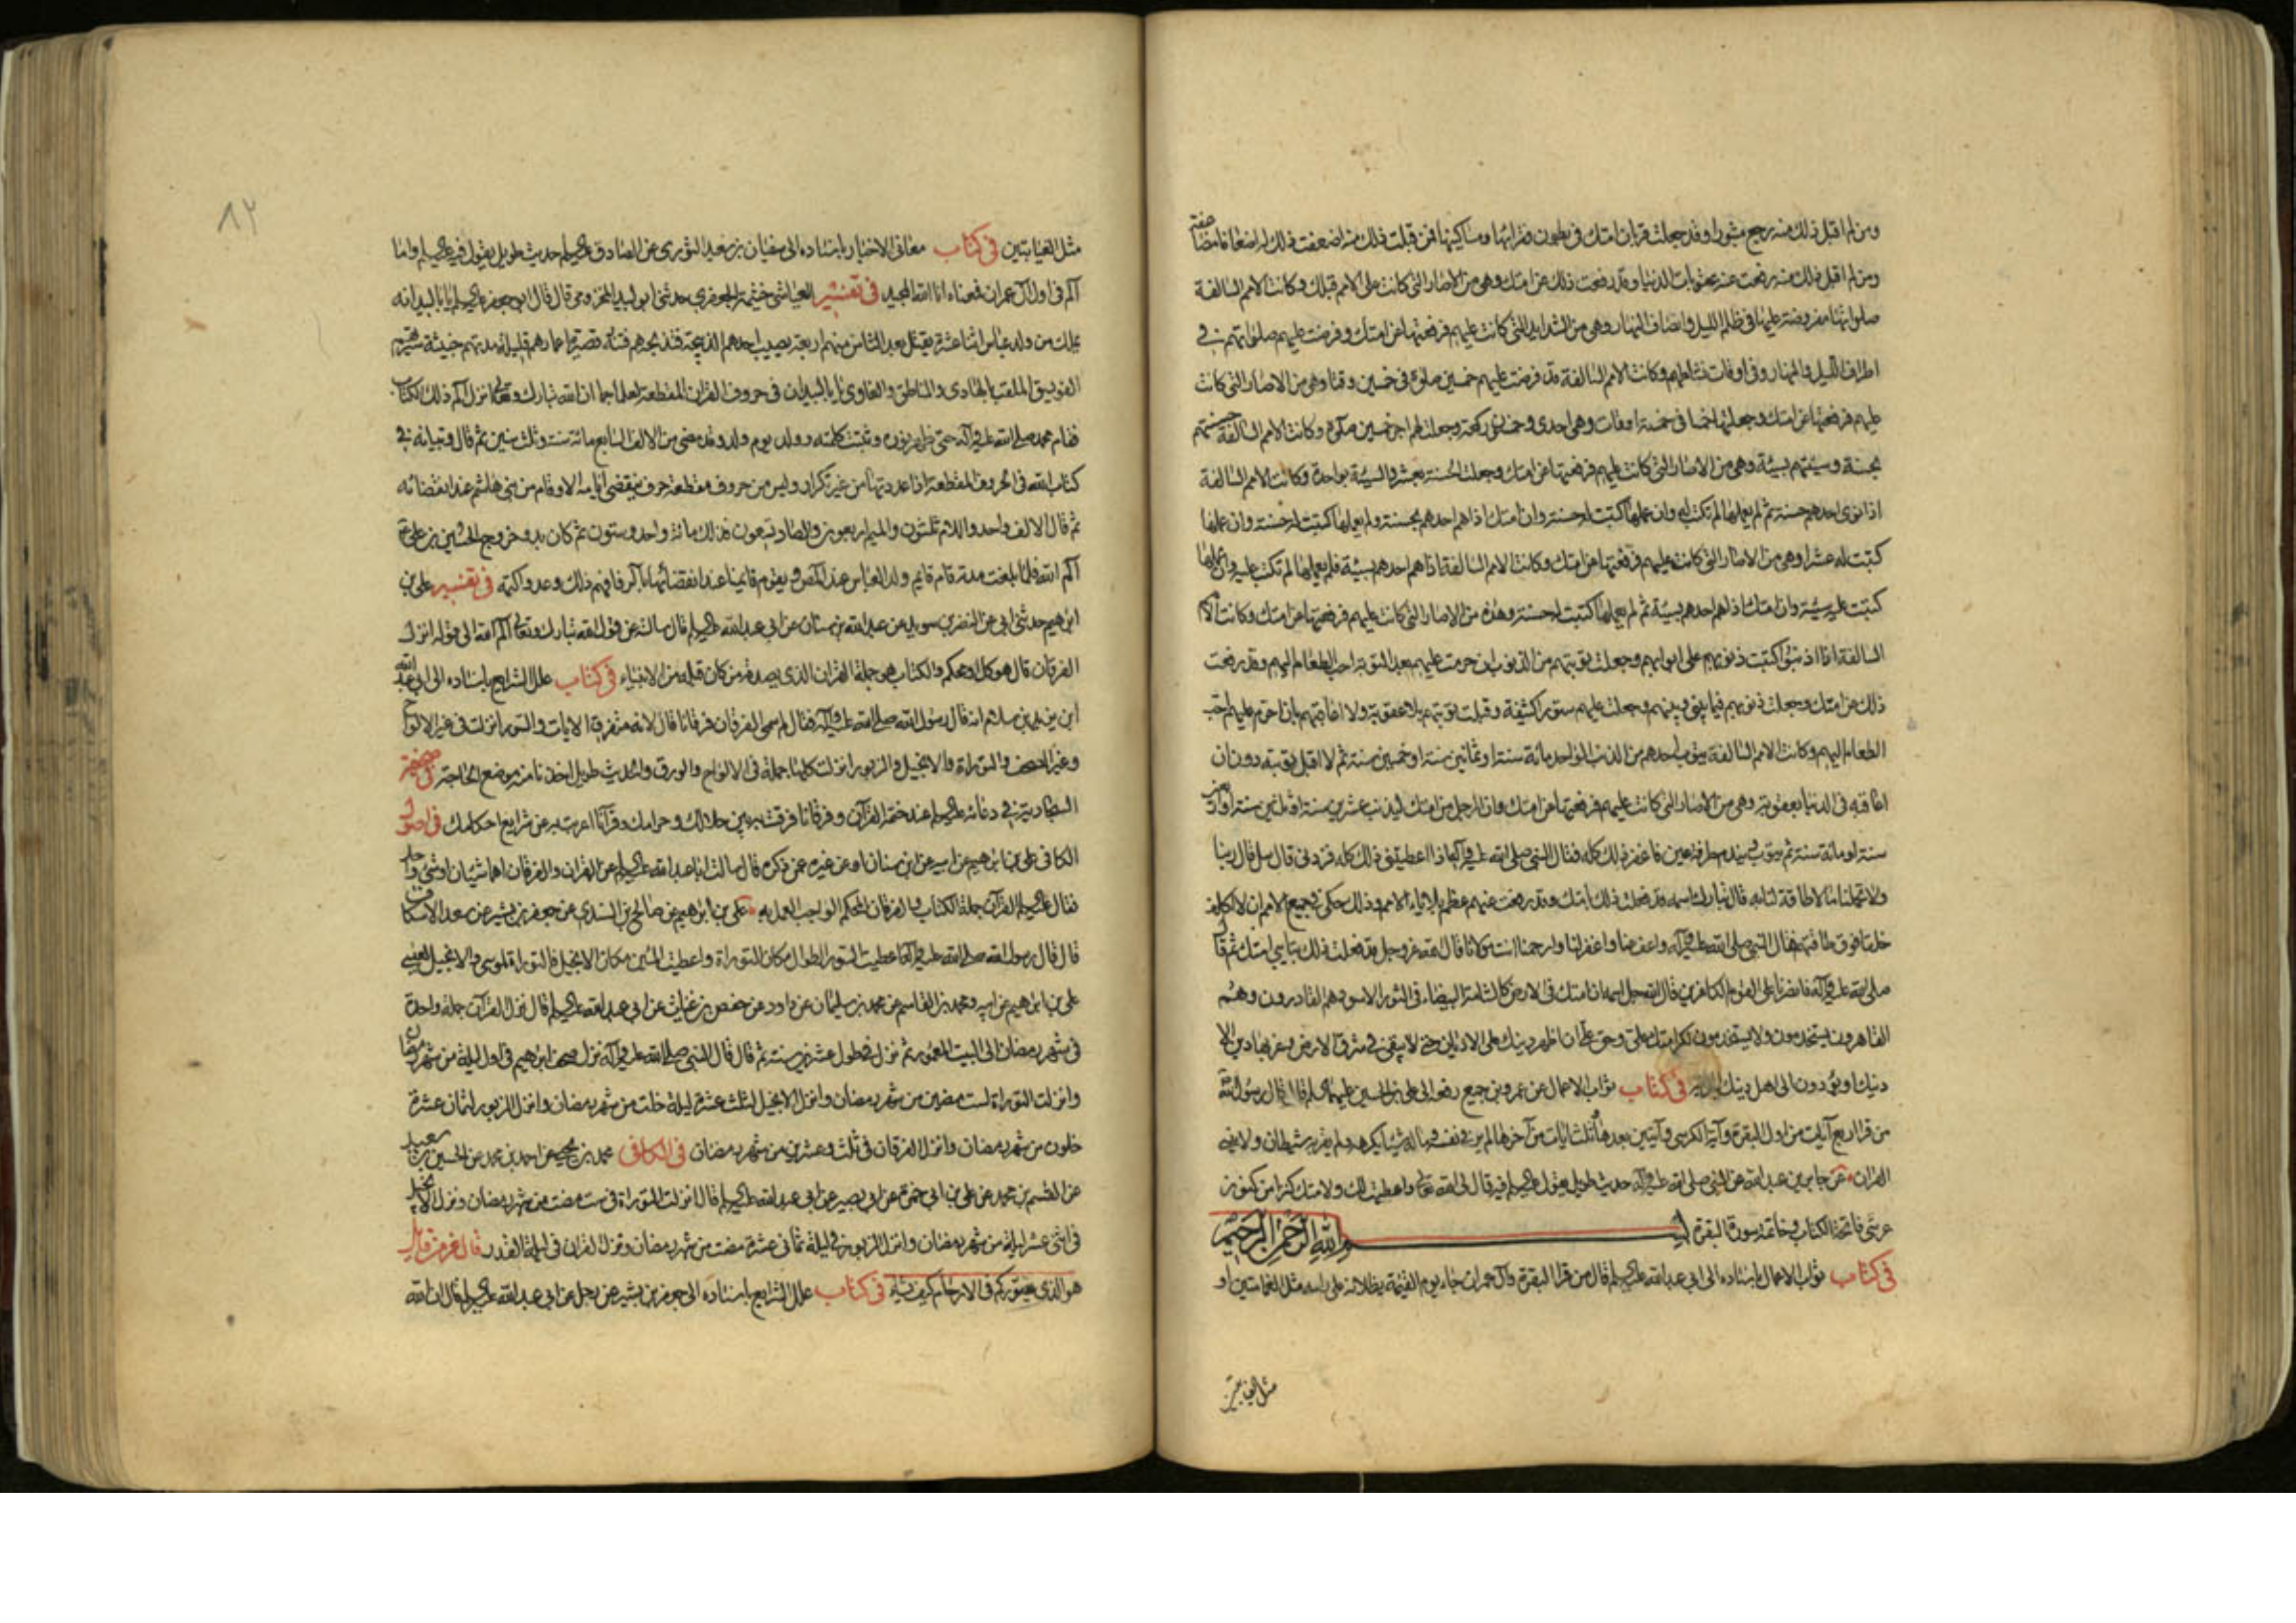 ومن لم اقبل ذلك منه رجع مثبورا وقد جعلت قربان امتك فى بطون فقرائها ومساكينها فمن قبلت ذلك منه اضعفت ذلك له اضعافا مضاعفة
ومن لم اقبل ذلك منه رفعت عنه عقوبات الدنيا وقد رفعت ذلك عن امتك وهى من الاصار التى كانت على الامم قبلك وكانت الامم السالفة
صلواتها مفروضة عليها فى ظلم الليل وانصاف النهار وهى من الشدايد التى كانت عليهم فرفعتها عن امتك وفرضت عليهم صلواتهم فى
اطراف الليل والنهار وفى اوقات نشاطهم وكانت الامم السالفة قد فرضت عليهم خمسين صلوة فى خمسين وقتا وهى من الاصار التى كانت
عليهم فرفعتها عن امتك وجعلتها خمسا فى خمسة اوقات وهى احدى وخمسون ركعة وجعلت لهم اجر خمسين صلوة وكانت الامم السالفة حسنتهم
بحسنة وسيئتهم بسيئة وهى من الاصار التى كانت عليهم فرفعتها عن امتك وجعلت الحسنة بعشر والسيئة بواحدة وكانت الامم السالفة
اذا نوى احدهم حسنة ثم لم يعملها لم تكتب له وان عملها كتبت له حسنة وان امتك اذا هم احدهم بحسنة ولم يعملها كتبت له حسنة وان عملها
كتبت له عشرا وهى من الاصار التى كانت عليهم فرفعتها عن امتك وكانت الامم السالفة اذا هم احدهم بسيئة فلم يعملها لم تكتب عليه وان عملها
كتبت عليه سيئة وان امتك اذا هم احدهم بسيئة ثم لم يعملها كتبت له حسنة وهذه من الاصار التى كانت عليهم فرفعتها عن امتك وكانت الامم
السالفة اذا اذنبوا كتبت ذنوبهم على ابوابهم وجعلت توبتهم من الذنوب ان حرمت عليهم بعد التوبة احب الطعام اليهم وقد رفعت
ذلك عن امتك وجعلت ذنوبهم فيما بينى وبينهم وجعلت عليهم ستورا كثيفة وقبلت توبتهم بلا عقوبة ولا اعاقبهم بان احرم عليهم احب
الطعام اليهم وكانت الامم السالفة يتوب احدهم من الذنب الواحد مائة سنة او ثمانين سنة او خمسين سنة ثم لا اقبل توبته دون ان
اعاقبه فى الدنيا بعقوبة وهى من الاصار التى كانت عليهم فرفعتها عن امتك وان الرجل من امتك ليذنب عشرين سنة او ثلثين سنة او اربعين
سنة او مائة سنة ثم يتوب ويندم طرفة عين فاغفر ذلك كله فقال النبى صلى الله عليه وآله اذا اعطيتنى ذلك كله فزدنى قال سل قال ربنا
ولا تحملنا ما لا طاقة لنا به قال تبارك اسمه قد فعلت ذلك بامتك وقد رفعت عنهم عظم بلايا الامم وذلك حكمى فى جميع الامم ان لا اكلف
خلقا فوق طاقتهم فقال النبى صلى الله عليه وآله واعف عنا واغفر لنا وارحمنا انت مولانا قال الله عز وجل قد فعلت ذلك بتائبى امتك ثم قال
صلى الله عليه وآله فانصرنا على القوم الكافرين قال الله جل اسمه ان امتك فى الارض كالشامة البيضاء فى الثور الاسود هم القادرون وهم
القاهرون يستخدمون ولا يستخدمون لكرامتك على وحق على ان اظهر دينك على الاديان حتى لا يبقى فى شرق الارض وغربها دين الا
دينك او يؤدون الى اهل دينك الجزية فى كتاب ثواب الاعمال عن عمرو بن جميع رفعه الى على بن الحسين عليهما السلم قال قال رسول الله
من قرا اربع آيات من اول البقرة وآية الكرسى وآيتين بعدها وثلث ايات من آخرها لم ير فى نفسه وماله شيئا يكرهه ولم يقربه شيطان ولا ينسى
القران عن جابر بن عبد الله عن النبى صلى الله عليه وآله حديث طويل يقول عليه السلم فيه قال لى الله تعالى واعطيت لك ولامتك كنزا من كنوز
عرشى فاتحة الكتاب وخاتمة سورة البقرة بسم الله الرحمن الرحيم
فى كتاب ثواب الاعمال باسناده الى ابى عبد الله عليه السلم قال من قرا البقرة وآل عمران جاء يوم القيمة يظلانه على راسه مثل الغمامتين او
مثل الغيابتين
٨٢
مثل الغيابتين فى كتاب معانى الاخبار باسناده الى سفيان بن سعيد الثورى عن الصادق عليه السلم حديث طويل يقول فيه عليه السلم واما
الم فى اول آل عمران فمعناه انا الله المجيد فى تفسير العياشى خيثمة الجعفرى حدثنى ابو لبيد المخزومى قال قال ابو جعفر عليه السلم يا با لبيد انه
يملك من ولد عباس اثنا عشر يقتل بعد الثامن منهم اربعة يصيب احدهم الذبحة فتذبحه هم فئة قصيرة اعمارهم قليلة مدتهم خبيثة سيرتهم
الفويسق الملقب بالهادى والناطق والغاوى يا با لبيد ان فى حروف القران المقطعة لعلما جما ان الله تبارك وتعالى انزل الم ذلك الكتاب
فقام محمد صلى الله عليه وآله حتى ظهر نوره وثبتت كلمته وولد يوم ولد وقد مضى من الالف السابع مائة سنة وثلث سنين ثم قال وتبيانه فى
كتاب الله فى الحروف المقطعة اذا عددتها من غير تكرار وليس من حروف مقطعة حرف ينقضى ايامه الا وقام من بنى هاشم عند انقضائه
ثم قال الالف واحد واللام ثلثون والميم اربعون والصاد تسعون فذلك مائة واحد وستون ثم كان بدو خروج الحسين بن على ع
الم الله فلما بلغت مدته قام قايم ولد العباس عند المص ويقوم قايمنا عند انقضائها بالر فافهم ذلك وعه واكتمه فى تفسير على بن
ابرهيم حدثنى ابى عن النضر بن سويد عن عبد الله بن سنان عن ابى عبد الله عليه السلم قال سالته عن قول الله تبارك وتعالى الم الله الى قوله انزل
الفرقان قال هو كل امر محكم والكتاب هو جملة القران الذى يصدقه من كان قبله من الانبياء فى كتاب علل الشرايع باسناده الى ابى عبد الله
ابن يزيد بن سلام انه قال رسول الله صلى الله عليه وآله فقال لم سمى الفرقان فرقانا قال لانه متفرق الايات والسور انزلت فى غير الالواح
وغير الصحف والتوراة والانجيل والزبور انزلت كلها جملة فى الالواح والورق والحديث طويل اخذنا منه موضع الحاجة فى صحيفة
السجادية فى دعائه عليه السلم عند ختمه القرآن وفرقانا فرقت به بين حلالك وحرامك وقرآنا اعربت به عن شرايع احكامك فى اصول
الكافى على بن ابرهيم عن ابيه عن ابن سنان او عن غيره عمن ذكره قال سالت ابا عبد الله عليه السلم عن القران والفرقان اهما شيئان او شئ واحد
فقال عليه السلم القرآن جملة الكتاب والفرقان المحكم الواجب العمل به على بن ابرهيم عن صالح بن السندى عن جعفر بن بشير عن سعد الاسكاف
قال قال رسول الله صلى الله عليه وآله اعطيت السور الطول مكان التوراة واعطيت المئين مكان الانجيل فالتوراة لموسى والانجيل لعيسى
على بن ابرهيم عن ابيه ومحمد بن القاسم عن محمد بن سليمان عن داود عن حفص بن غياث عن ابى عبد الله عليه السلم قال نزل القرآن جملة واحدة
فى شهر رمضان الى البيت المعمور ثم نزل فى طول عشرين سنة ثم قال قال النبى صلى الله عليه وآله نزل صحف ابرهيم فى اول ليلة من شهر رمضان
وانزلت التوراة لست مضين من شهر رمضان وانزل الانجيل لثلث عشرة ليلة خلت من شهر رمضان وانزل الزبور لثمان عشرة
خلون من شهر رمضان وانزل الفرقان فى ثلث وعشرين من شهر رمضان فى الكافى محمد بن يحيى عن احمد بن محمد عن الحسين بن سعيد
عن القسم بن محمد عن على بن ابى حمزة عن ابى بصير عن ابى عبد الله عليه السلم قال نزلت التوراة فى ست مضت من شهر رمضان ونزل الانجيل
فى اثنى عشر ليلة من شهر رمضان وانزل الزبور فى ليلة ثمانى عشرة مضت من شهر رمضان ونزل القران فى ليلة القدر قال عز من قايل
هو الذى يصوركم فى الارحام كيف يشاء فى كتاب علل الشرايع باسناده الى جعفر بن بشير عن رجل عن ابى عبد الله عليه السلم قال ان الله